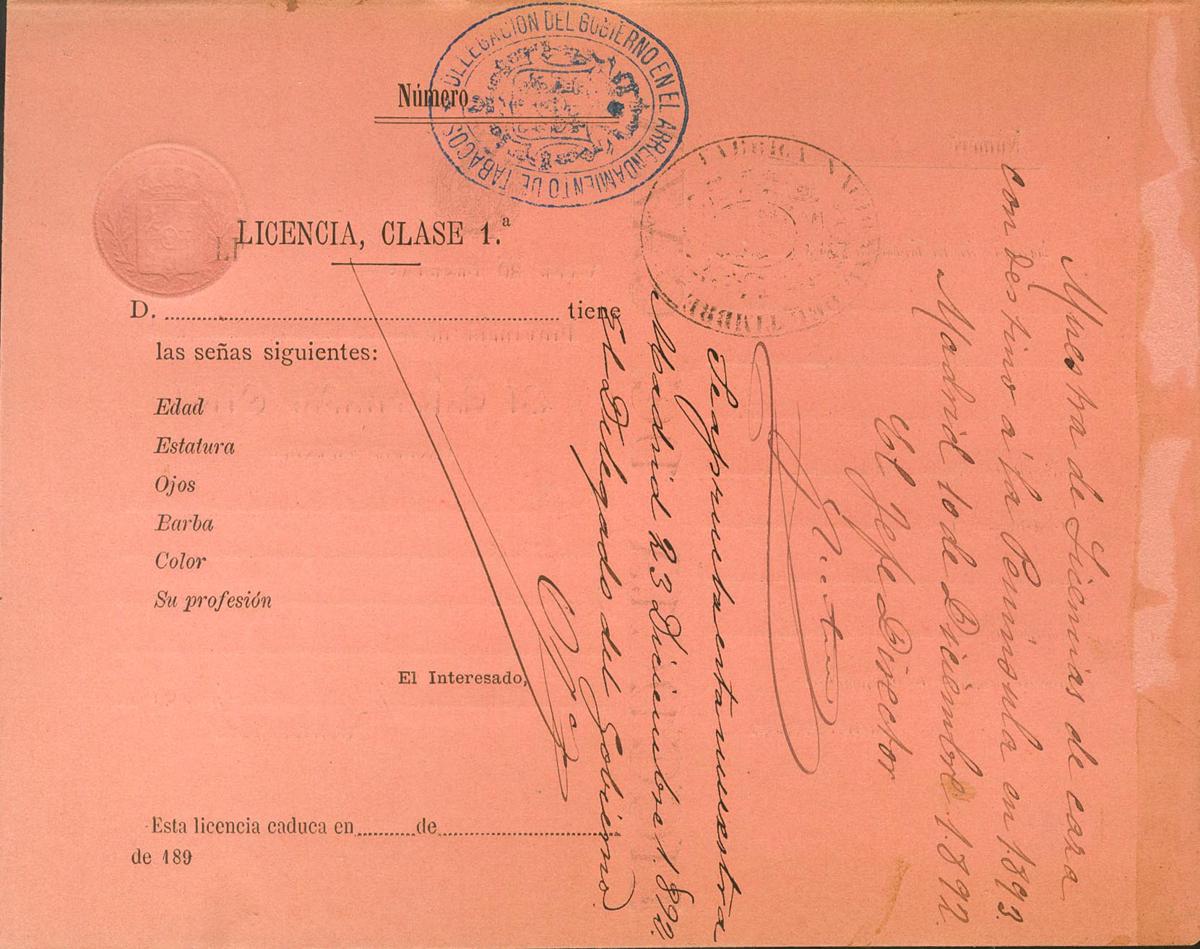 DELEGACION DEL GOBIERNO EN EL ARRENDAMIENTO DE TABACOS
Número
FABRICA NACIONAL DEL TIMBRE
LICENCIA, CLASE 1.ª
D. tiene
las señas siguientes:
Edad
Estatura
Ojos
Barba
Color
Su profesión
El Interesado,
Esta licencia caduca en de
de 189
Muestra de Licencias de caza
con destino á la Peninsula en 1893.
Madrid 10 de Diciembre 1892.
El Jefe Director
Se aprueba esta muestra
Madrid 23 Diciembre 1892.
El Delegado del Gobierno